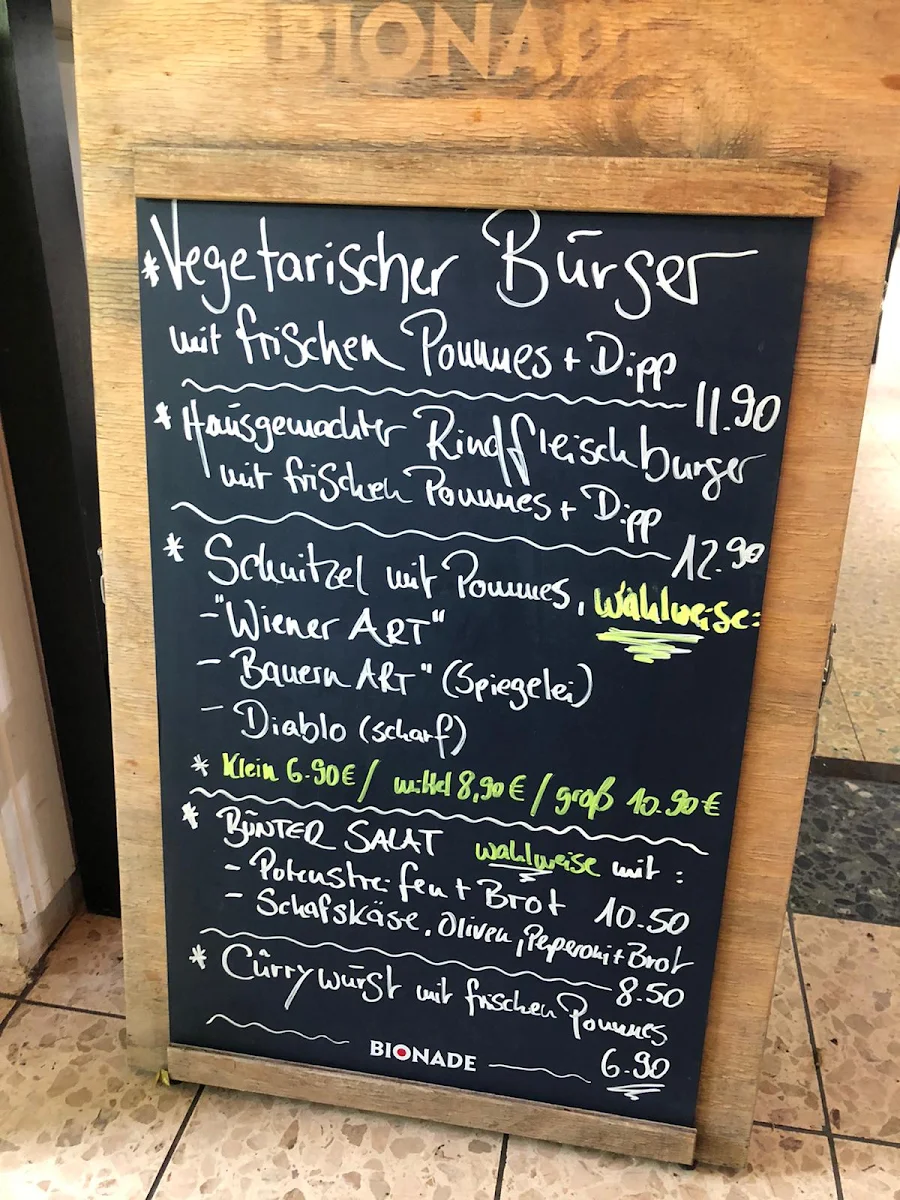 BIONADE
*Vegetarischer Būrger
mit frischen Pommes + Dipp
11.90
* Hausgemachter Rindfleischburger
mit frischen Pommes + Dipp
12.90
* Schnitzel mit Pommes, Wahlweise:
- "Wiener ART"
- Bauern ART" (Spiegelei)
- Diablo (scharf)
* Klein 6.90€ / mittel 8,90€ / groß 10.90€
* BŪNTER SALAT wahlweise mit:
- Putenstreifen + Brot 10.50
- Schafskäse, Oliven, Peperoni + Brot
8.50
* Cūrrywūrst mit frischen Pommes
6.90
BIONADE